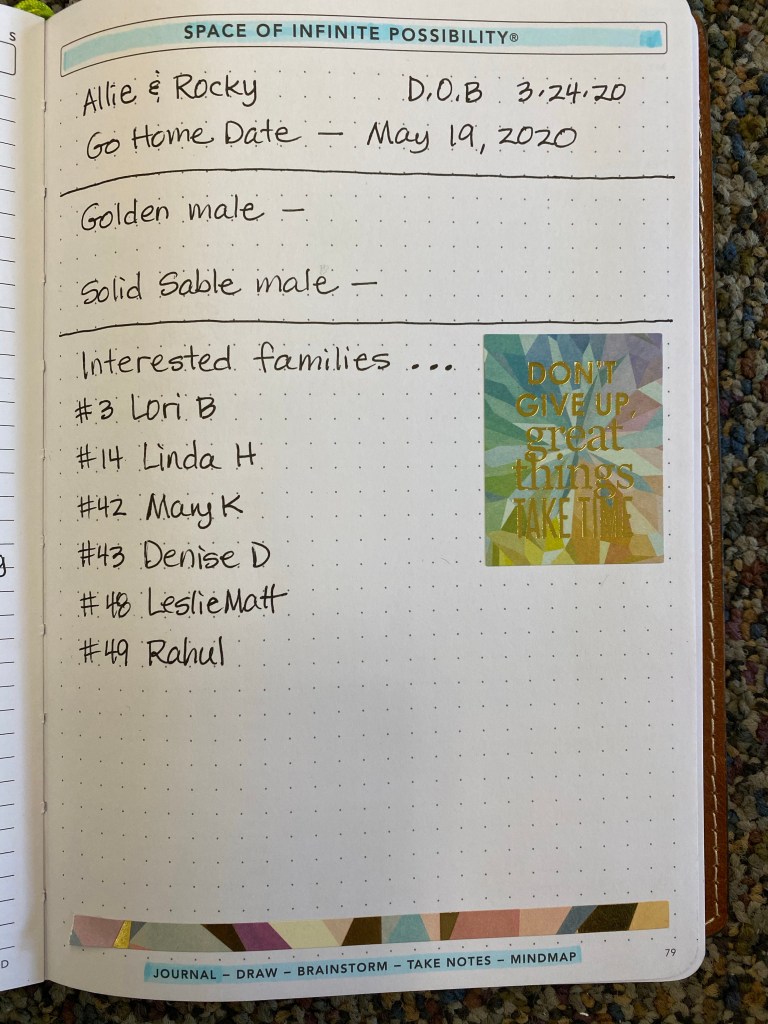 SPACE OF INFINITE POSSIBILITY®
Allie & Rocky D.O.B 3.24.20
Go Home Date – May 19, 2020
Golden male –
Solid Sable male –
Interested families ...
#3 Lori B
#14 Linda H
#42 Mary K
#43 Denise D
#48 Leslie Matt
#49 Rahul
DON'T
GIVE UP,
great
things
TAKE TIME
79
JOURNAL – DRAW – BRAINSTORM – TAKE NOTES – MINDMAP
S
g
D